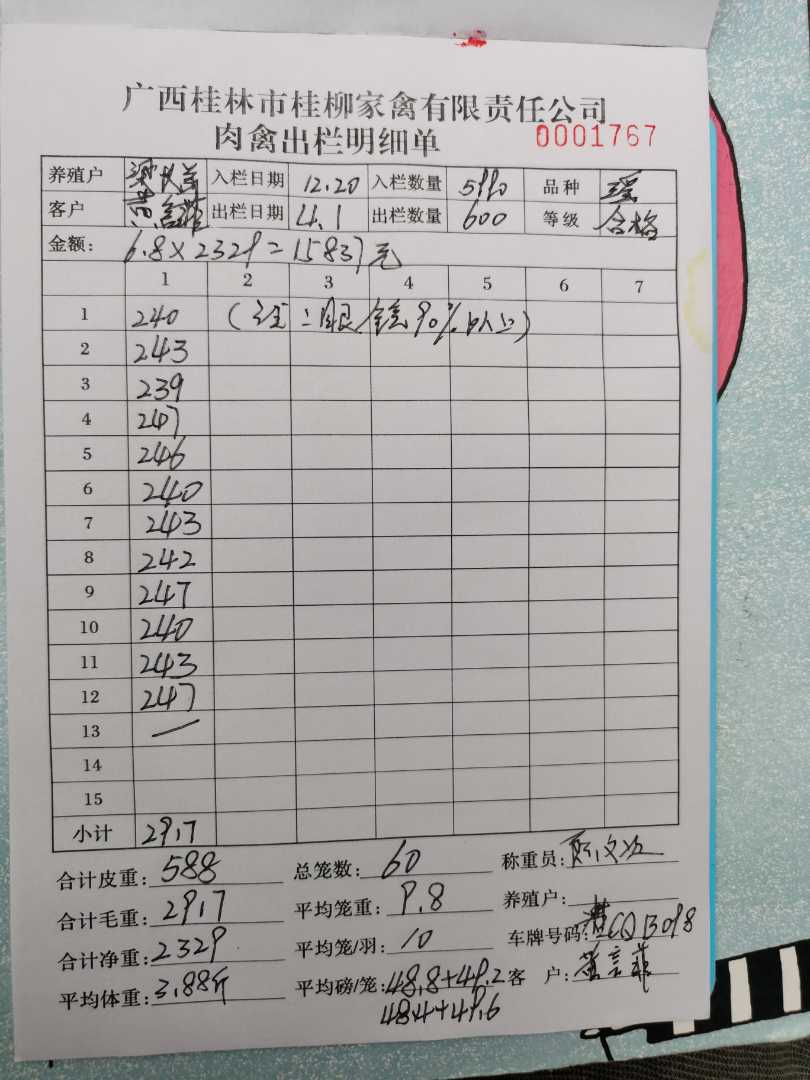 广西桂林市桂柳家禽有限责任公司
肉禽出栏明细单 0001767
养殖户 入栏日期 12.20 入栏数量 5990 品种 瑶
客户 出栏日期 4.1 出栏数量 600 等级 合格
金额: 6.8×2329=15837元
1 2 3 4 5 6 7
1 240 (注: 眼 90%以上)
2 243
3 239
4 247
5 246
6 240
7 243
8 242
9 247
10 240
11 243
12 247
13 —
14
15
小计 2917
合计皮重: 588 总笼数: 60 称重员:
合计毛重: 2917 平均笼重: 9.8 养殖户:
合计净重: 2329 平均笼/羽: 10 车牌号码: CQB098
平均体重: 3.88斤 平均磅/笼: 48.8+49.2 客 户:
48.4+49.6